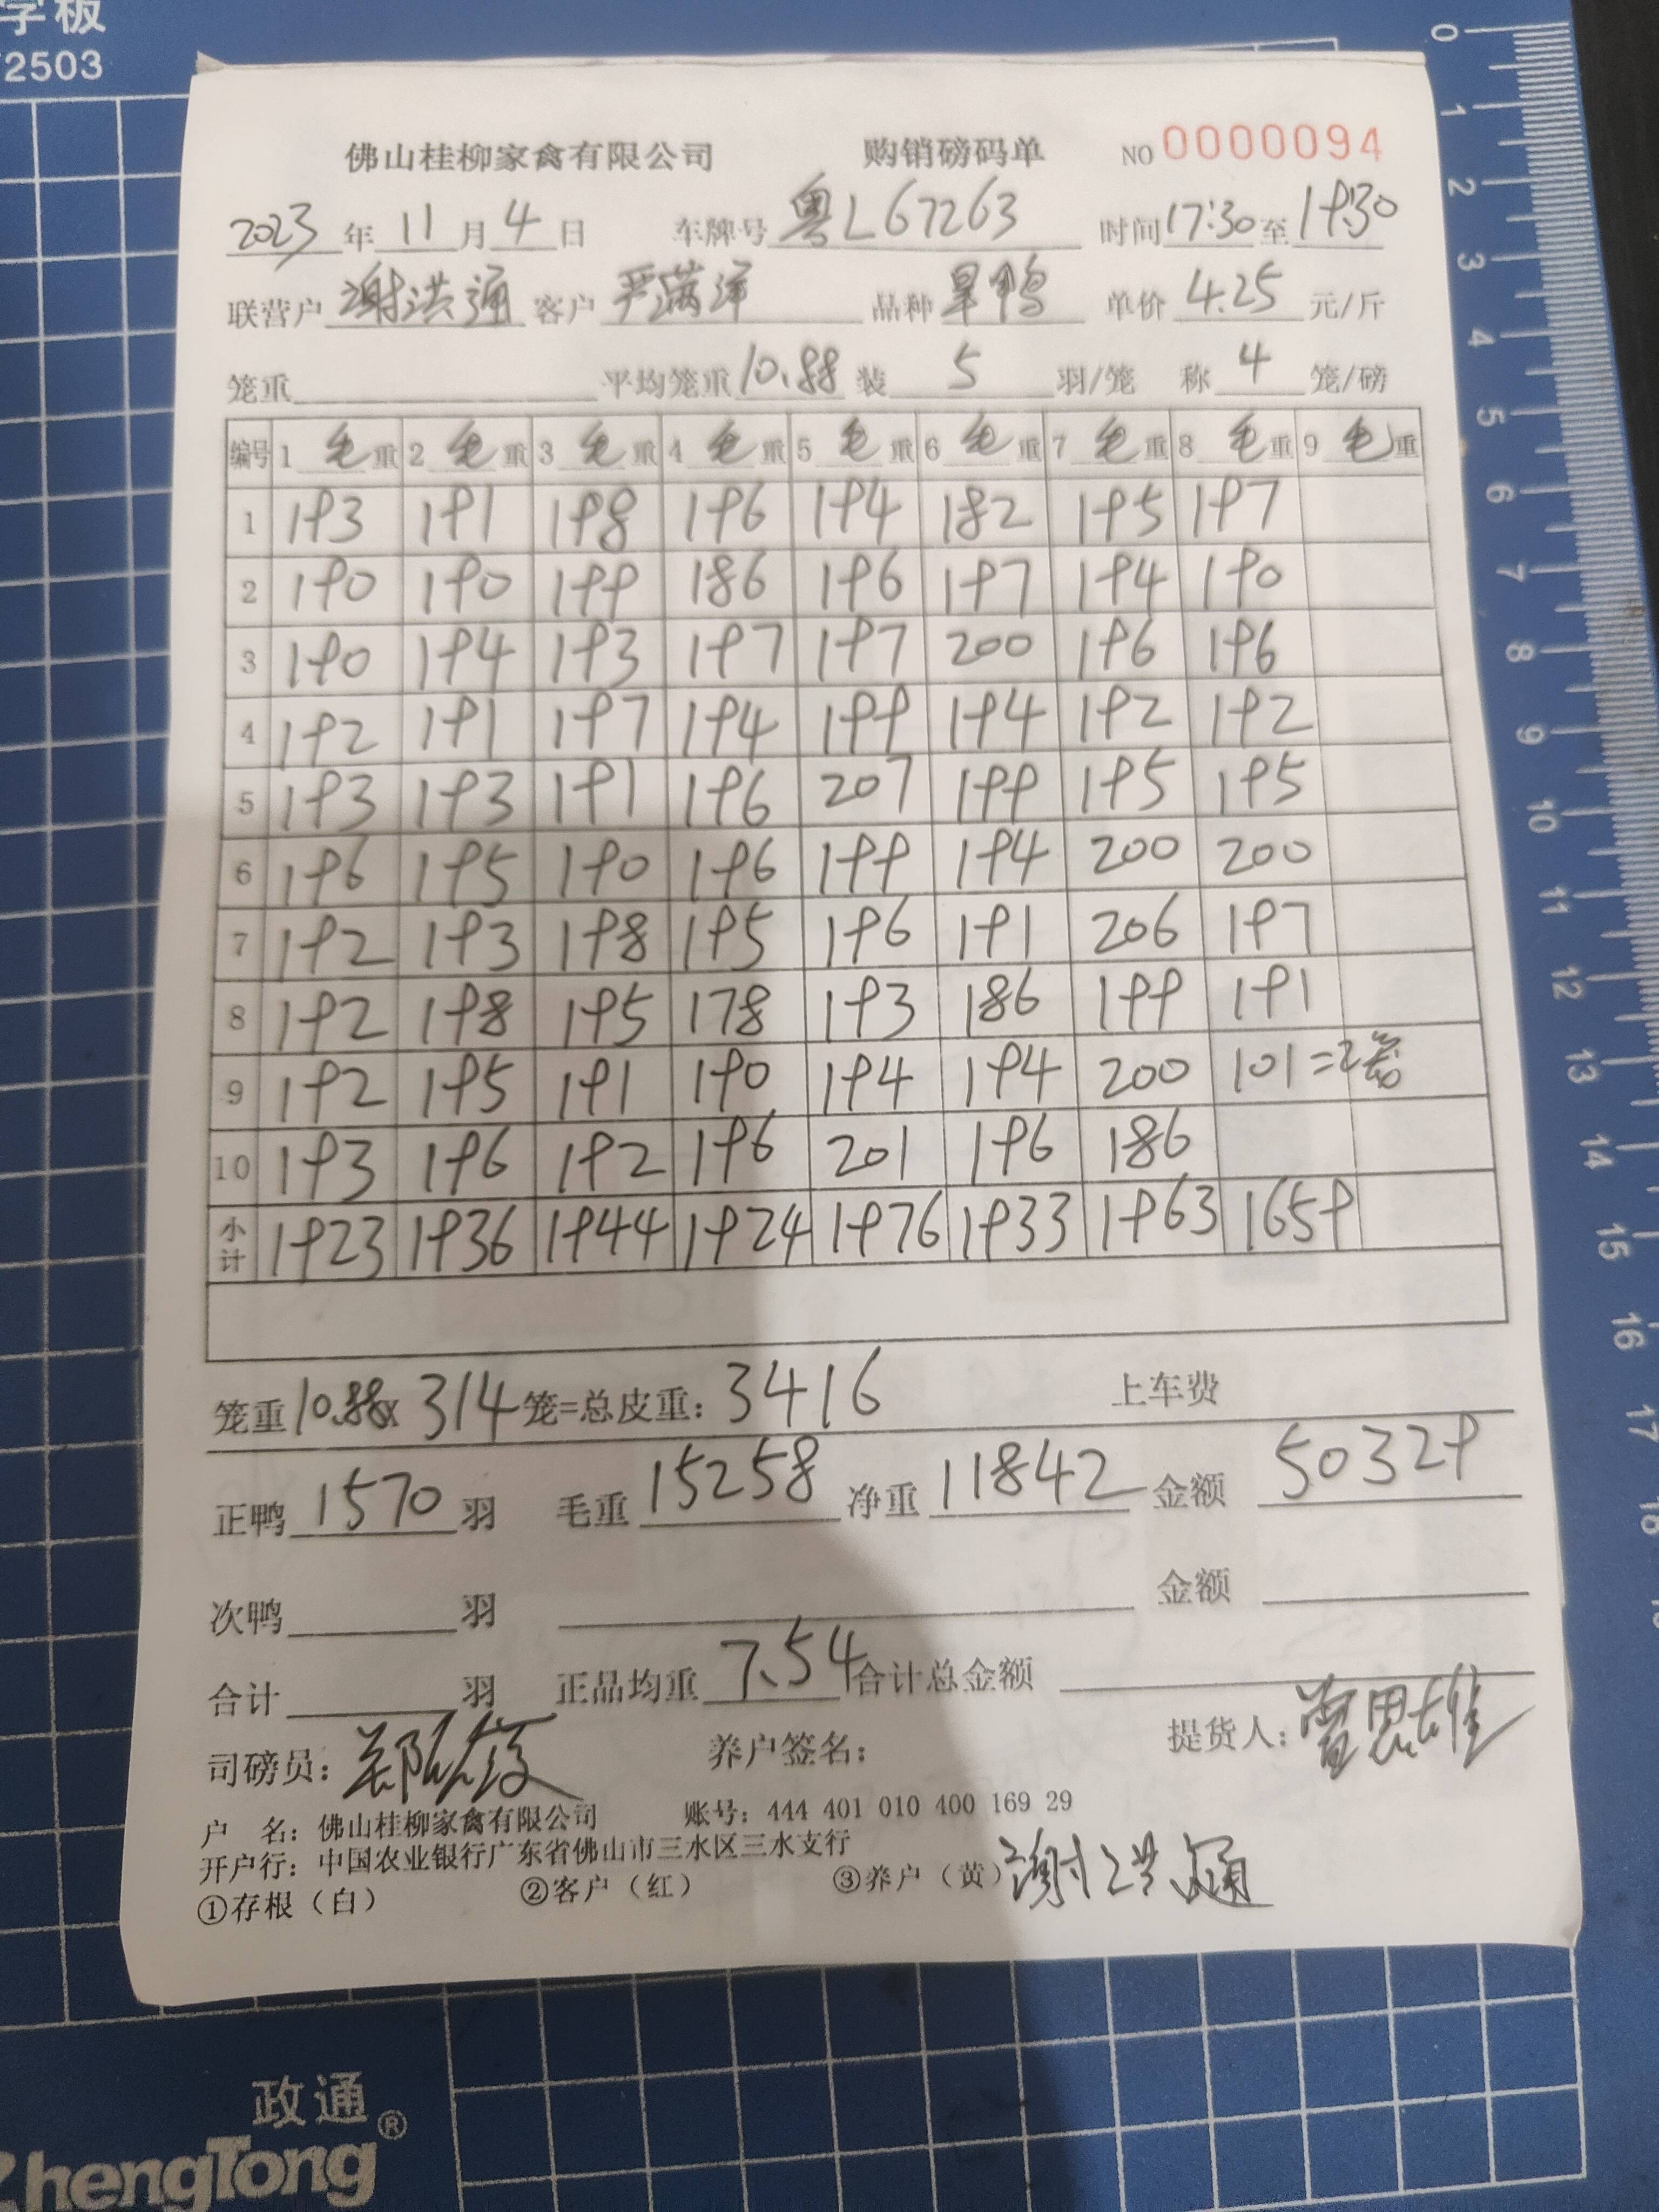 学板
2503
佛山桂柳家禽有限公司 购销磅码单 NO 0000094
2023年11月4日 车牌号 粤L67263 时间17:30至19:30
联营户 谢洪通 客户 严满洋 品种 旱鸭 单价 4.25 元/斤
笼重 平均笼重10.88 装 5 羽/笼 称 4 笼/磅
编号 1 毛重 2 毛重 3 毛重 4 毛重 5 毛重 6 毛重 7 毛重 8 毛重 9 毛重
1 193 191 198 196 194 182 195 197
2 190 190 199 186 196 197 194 190
3 190 194 193 197 197 200 196 196
4 192 191 197 194 199 194 192 192
5 193 193 191 196 207 199 195 195
6 196 195 190 196 199 194 200 200
7 192 193 198 195 196 191 206 197
8 192 198 195 178 193 186 199 191
9 192 195 191 190 194 194 200 101=2笼
10 193 196 192 196 201 196 186
小计 1923 1936 1944 1924 1976 1933 1963 1659
笼重10.88x 314笼=总皮重：3416 上车费
正鸭 1570 羽 毛重 15258 净重 11842 金额 50329
次鸭 羽 金额
合计 羽 正品均重 7.54 合计总金额
司磅员： 养户签名： 提货人：
户 名：佛山桂柳家禽有限公司 账号：444 401 010 400 169 29
开户行：中国农业银行广东省佛山市三水区三水支行
①存根（白） ②客户（红） ③养户（黄） 谢洪通
政通®
ZhengTong
0 1 2 3 4 5 6 7 8 9 10 11 12 13 14 15 16 17 18